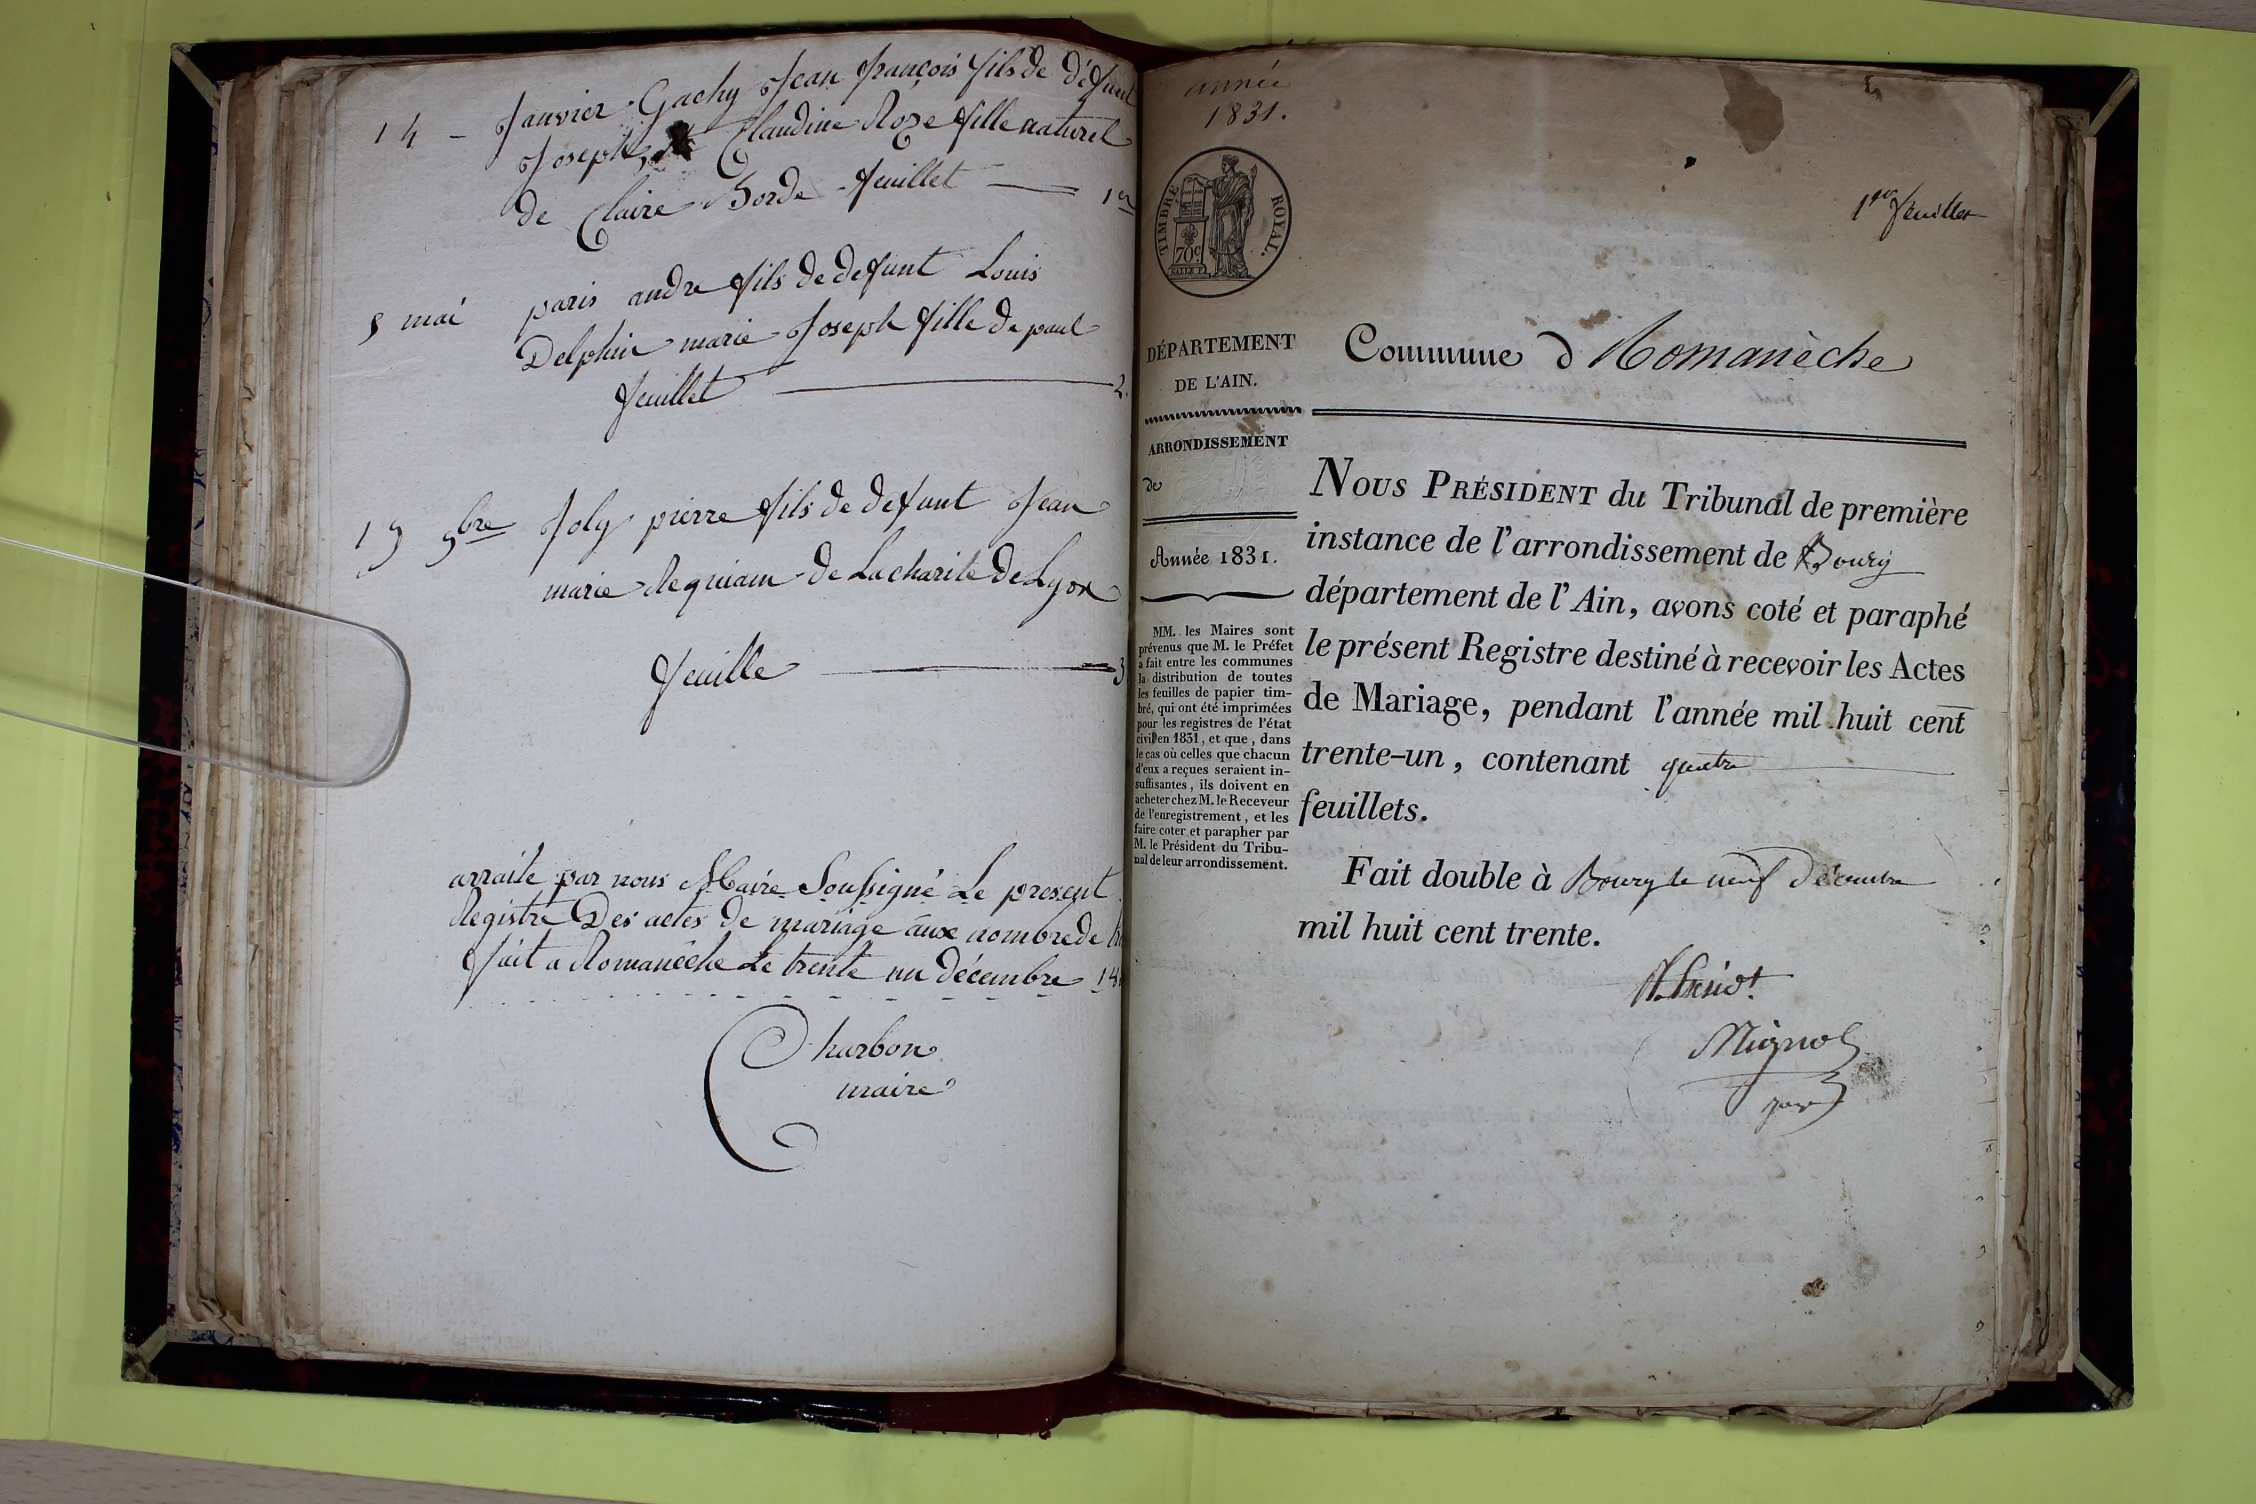 14 - Janvier Gachy Jean françois fils de défunt
Joseph, et Claudine Roze fille naturel
de Claire Borde feuillet 1er
5 mai paris andre fils de defunt Louis
Delphin marie Joseph fille de paul
feuillet 2
19 9bre Joly pierre fils de defunt Jean
marie Requiam de Lacharite de Lyon
feuille 3
arraite par nous Maire Soussigné Le present
Registre Des actes de mariage aux nombre de
fait a Romanêche Le trente un décembre 18
Charbon
maire
année
1831.
1er feuillet
TIMBRE ROYAL.
70c
DÉPARTEMENT
DE L'AIN.
ARRONDISSEMENT
de
Année 1831.
MM. les Maires sont
prévenus que M. le Préfet
a fait entre les communes
la distribution de toutes
les feuilles de papier tim-
bré, qui ont été imprimées
pour les registres de l'état
civil en 1831, et que, dans
le cas où celles que chacun
d'eux a reçues seraient in-
suffisantes, ils doivent en
acheter chez M. le Receveur
de l'enregistrement, et les
faire coter et parapher par
M. le Président du Tribu-
nal de leur arrondissement.
Commune d Romanèche
Nous Président du Tribunal de première
instance de l'arrondissement de Bourg
département de l'Ain, avons coté et paraphé
le présent Registre destiné à recevoir les Actes
de Mariage, pendant l'année mil huit cent
trente-un, contenant quatre
feuillets.
Fait double à Bourg le neuf Décembre
mil huit cent trente.
Mignot